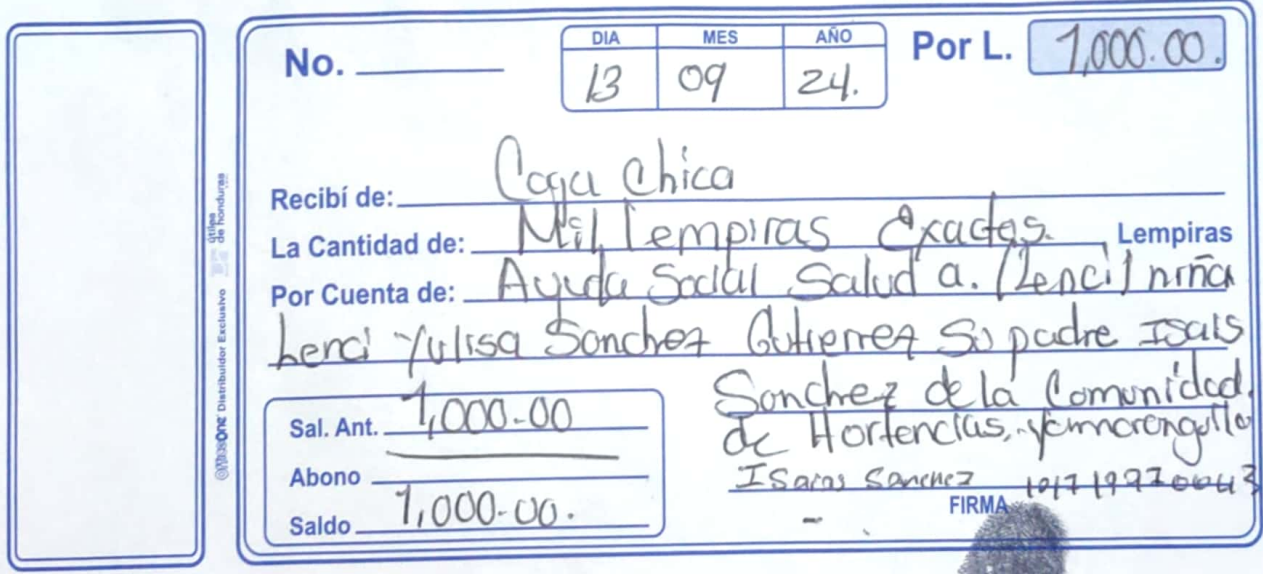 No.
DIA MES AÑO
13 09 24.
Por L. 1,000.00.
Recibí de: Caja Chica
La Cantidad de: Mil Lempiras Exactos. Lempiras
Por Cuenta de: Ayuda Social Salud a. (Lenci) niña
Lenci Yulisa Sanchez Gutierrez Su padre Isais
Sanchez de la Comunidad.
de Hortencias,
Sal. Ant. 1,000.00
Abono
Saldo 1,000.00.
Isaias Sanchez
FIRMA
Distribuidor Exclusivo
útiles
de honduras